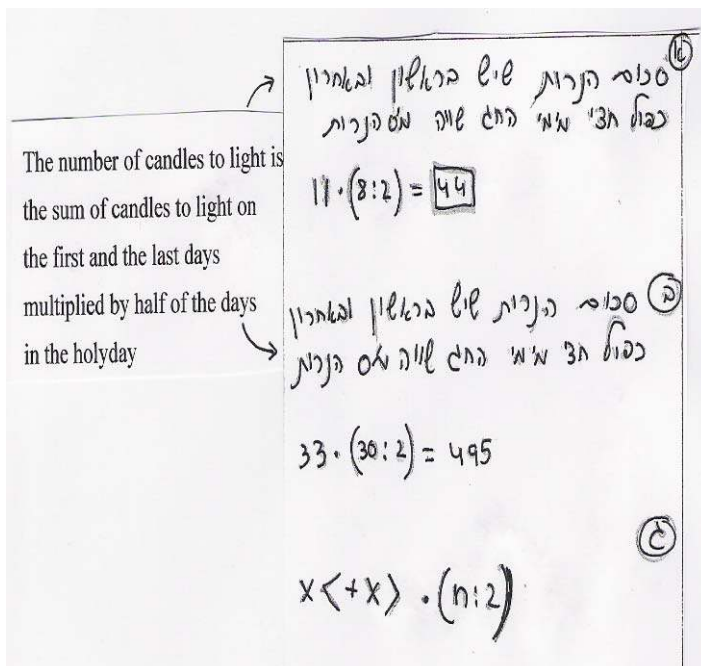 The number of candles to light is
the sum of candles to light on
the first and the last days
multiplied by half of the days
in the holyday
א סכום הנרות שיש בראשון ובאחרון
כפול חצי מימי החג שווה מס הנרות
11·(8:2) = 44
ב סכום הנרות שיש בראשון ובאחרון
כפול חצ מימי החג שווה מס הנרות
33·(30:2) = 495
ג
x<+x> ·(n:2)